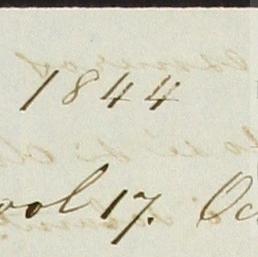 1844
ool 17. Oc